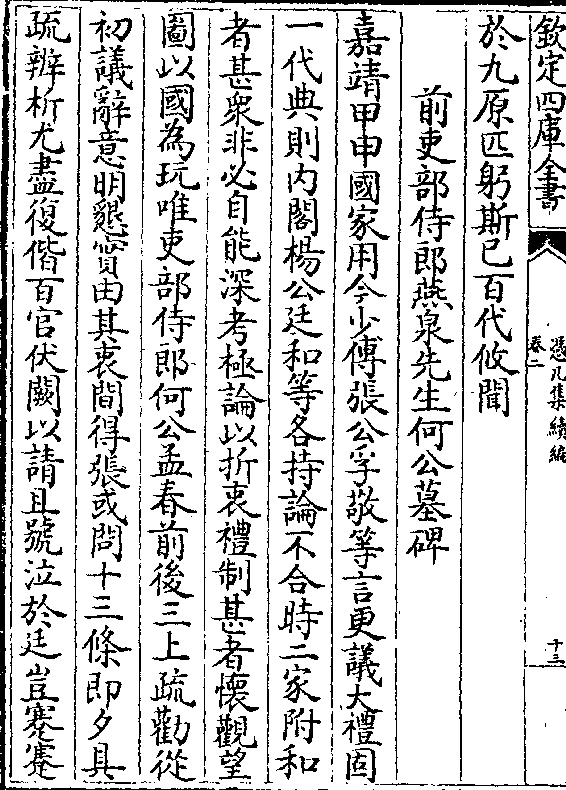 欽定四庫全書
憑几集續編
卷二
十三
於九原匹躬斯已百代攸聞
前吏部侍郎燕泉先生何公墓碑
嘉靖甲申國家用今少傅張公孚敬等言更議大禮固
一代典則內閣楊公廷和等各持論不合時二家附和
者甚衆非必自能深考極論以折衷禮制甚者懷觀望
圖以國為玩唯吏部侍郎何公孟春前後三上疏勸從
初議辭意明懇實由其衷間得張或問十三條即夕具
疏辨析尤盡復偕百官伏闕以請且號泣於廷豈蹇蹇